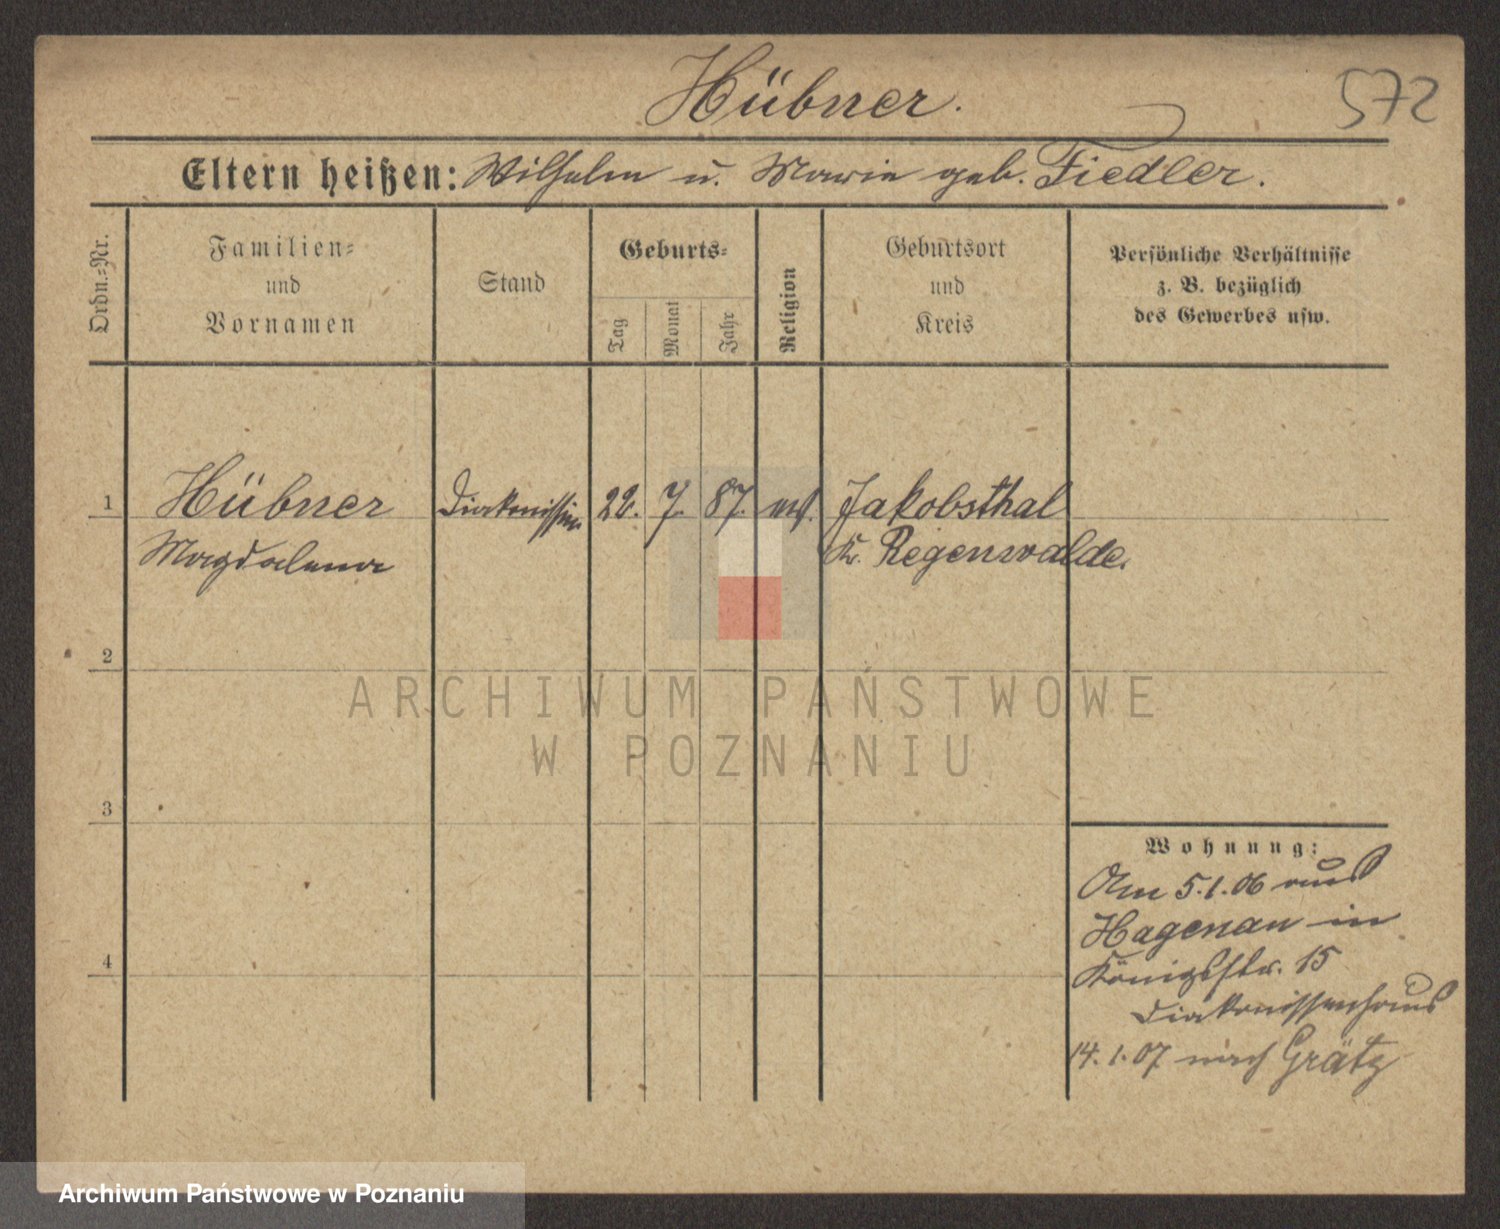 Hübner.
572
Eltern heißen: Wilhelm u. Marie geb. Fiedler.
Ordn.=Nr.
Familien=
und
Vornamen
Stand
Geburts=
Tag
Monat
Jahr
Religion
Geburtsort
und
Kreis
Persönliche Verhältnisse
z. B. bezüglich
des Gewerbes usw.
1
Hübner
Magdalena
Diakonissin
22. 7. 87.
Jakobsthal
Kr. Regenwalde.
2
3
4
ARCHIWUM PAŃSTWOWE
W POZNANIU
Wohnung:
Am 5.1.06 aus
Hagenau in
Königsstr. 15
Diakonissenhaus
14.1.07 nach Grätz
Archiwum Państwowe w Poznaniu